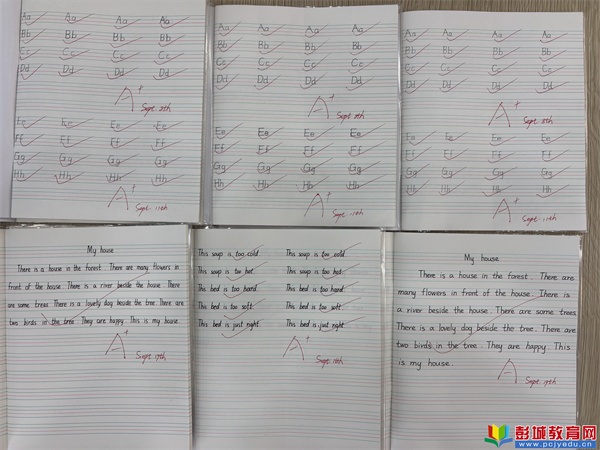 Aa Aa Aa Aa
Bb Bb Bb Bb
Cc Cc Cc Cc
Dd Dd Dd Dd
A+
Ee Ee Ee Ee
Ff Ff Ff Ff
Gg Gg Gg Gg
Hh Hh Hh Hh
A+ Sept. 11th
Aa Aa Aa Aa
Bb Bb Bb Bb
Cc Cc Cc Cc
Dd Dd Dd Dd
A+
Ee Ee Ee Ee
Ff Ff Ff Ff
Gg Gg Gg Gg
Hh Hh Hh Hh
A+ Sept. 11th
Aa Aa Aa Aa
Bb Bb Bb Bb
Cc Cc Cc Cc
Dd Dd Dd Dd
A+
Ee Ee Ee Ee
Ff Ff Ff Ff
Gg Gg Gg Gg
Hh Hh Hh Hh
A+ Sept. 11th
My house
There is a house in the forest. There are many flowers in
front of the house. There is a river beside the house. There
are some trees. There is a lovely dog beside the tree. There are
two birds in the tree. They are happy. This is my house.
A+ Sept. 17th
This soup is too cold. This soup is too cold.
This soup is too hot. This soup is too hot.
This bed is too hard. This bed is too hard.
This bed is too soft. This bed is too soft.
This bed is just right. This bed is just right.
A+ Sept. 18th
My house
There is a house in the forest. There are
many flowers in front of the house. There is
a river beside the house. There are some trees
There is a lovely dog beside the tree. There are
two birds in the tree. They are happy. This
is my house.
A+ Sept. 17th
彭城教育网
www.pcjyedu.cn